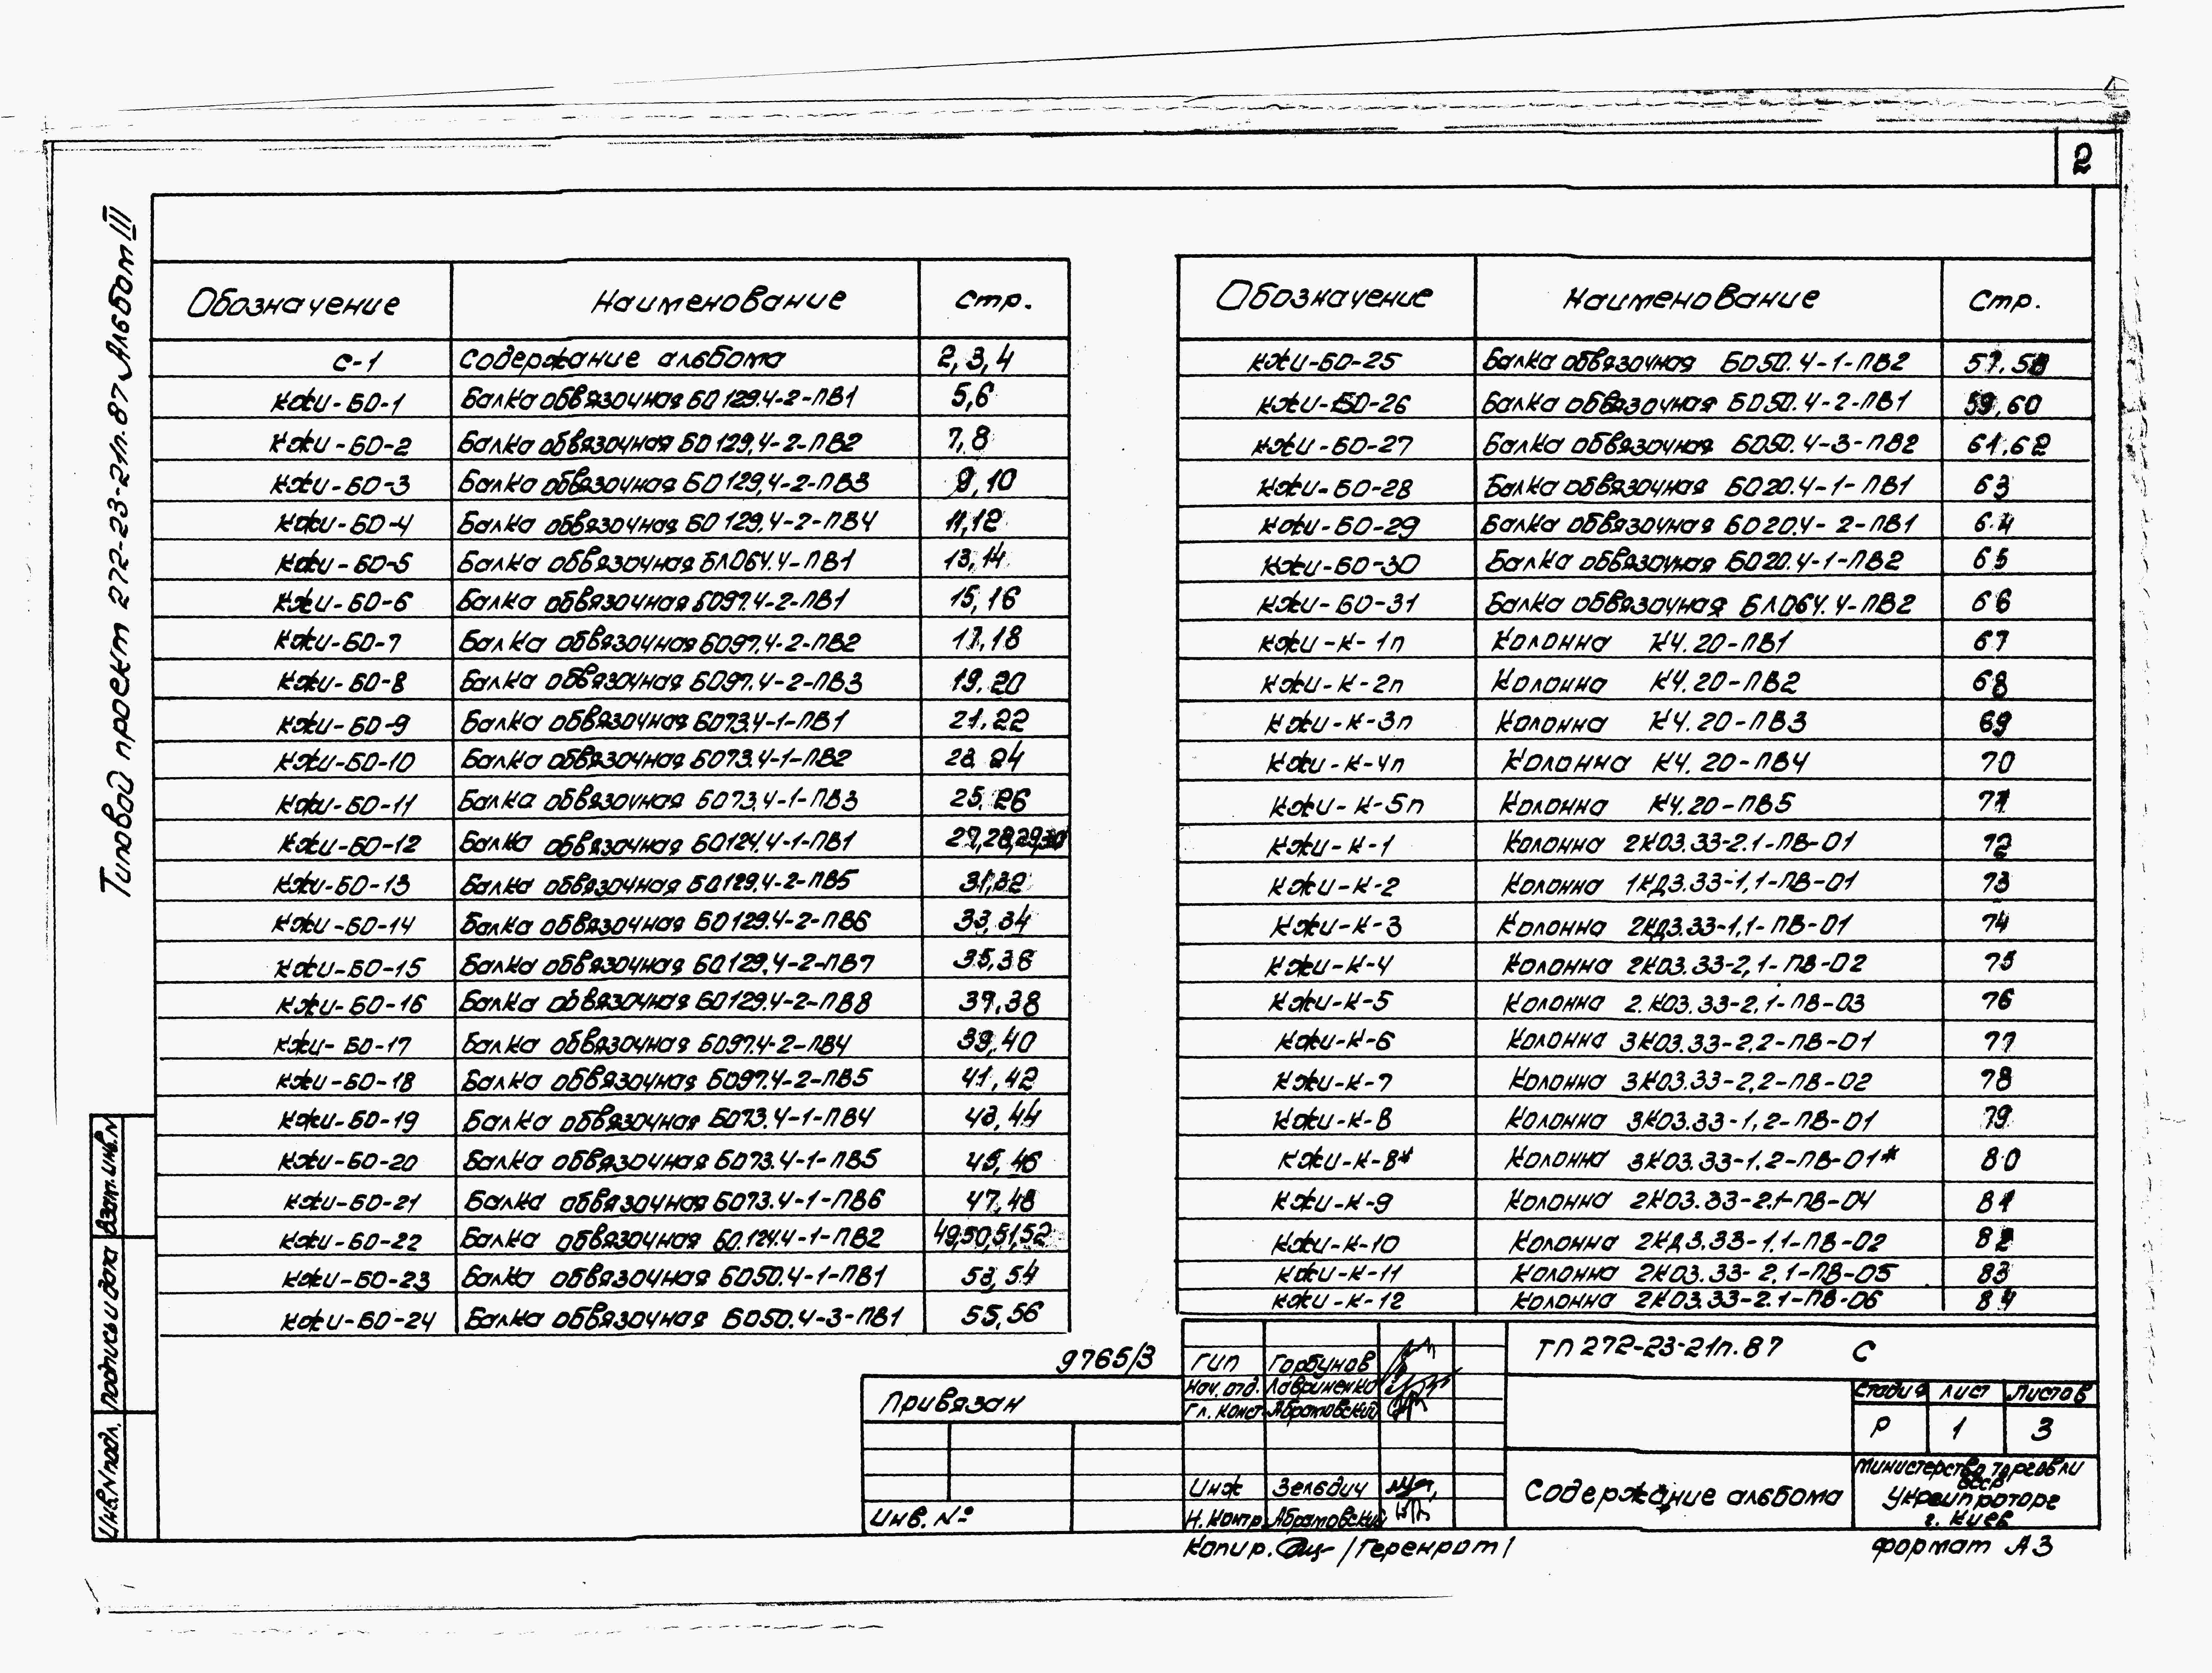 2
Типовой проект 272-23-21п.87 Альбом III
Обозначение Наименование Стр.
С-1 Содержание альбома 2,3,4
КЖИ-БО-1 Балка обвязочная БО129.4-2-ПВ1 5,6
КЖИ-БО-2 Балка обвязочная БО129.4-2-ПВ2 7,8
КЖИ-БО-3 Балка обвязочная БО129.4-2-ПВ3 9,10
КЖИ-БО-4 Балка обвязочная БО129.4-2-ПВ4 11,12
КЖИ-БО-5 Балка обвязочная БЛО64.4-ПВ1 13,14
КЖИ-БО-6 Балка обвязочная БО97.4-2-ПВ1 15,16
КЖИ-БО-7 Балка обвязочная БО97.4-2-ПВ2 17,18
КЖИ-БО-8 Балка обвязочная БО97.4-2-ПВ3 19,20
КЖИ-БО-9 Балка обвязочная БО73.4-1-ПВ1 21,22
КЖИ-БО-10 Балка обвязочная БО73.4-1-ПВ2 23,24
КЖИ-БО-11 Балка обвязочная БО73.4-1-ПВ3 25,26
КЖИ-БО-12 Балка обвязочная БО124.4-1-ПВ1 27,28,29,30
КЖИ-БО-13 Балка обвязочная БО129.4-2-ПВ5 31,32
КЖИ-БО-14 Балка обвязочная БО129.4-2-ПВ6 33,34
КЖИ-БО-15 Балка обвязочная БО129.4-2-ПВ7 35,36
КЖИ-БО-16 Балка обвязочная БО129.4-2-ПВ8 37,38
КЖИ-БО-17 Балка обвязочная БО97.4-2-ПВ4 39,40
КЖИ-БО-18 Балка обвязочная БО97.4-2-ПВ5 41,42
КЖИ-БО-19 Балка обвязочная БО73.4-1-ПВ4 43,44
КЖИ-БО-20 Балка обвязочная БО73.4-1-ПВ5 45,46
КЖИ-БО-21 Балка обвязочная БО73.4-1-ПВ6 47,48
КЖИ-БО-22 Балка обвязочная БО.124.4-1-ПВ2 49,50,51,52
КЖИ-БО-23 Балка обвязочная БО50.4-1-ПВ1 53,54
КЖИ-БО-24 Балка обвязочная БО50.4-3-ПВ1 55,56
Обозначение Наименование Стр.
КЖИ-БО-25 Балка обвязочная БО50.4-1-ПВ2 57,58
КЖИ-БО-26 Балка обвязочная БО50.4-2-ПВ1 59,60
КЖИ-БО-27 Балка обвязочная БО50.4-3-ПВ2 61,62
КЖИ-БО-28 Балка обвязочная БО20.4-1-ПВ1 63
КЖИ-БО-29 Балка обвязочная БО20.4-2-ПВ1 64
КЖИ-БО-30 Балка обвязочная БО20.4-1-ПВ2 65
КЖИ-БО-31 Балка обвязочная БЛО64.4-ПВ2 66
КЖИ-К-1п Колонна К4.20-ПВ1 67
КЖИ-К-2п Колонна К4.20-ПВ2 68
КЖИ-К-3п Колонна К4.20-ПВ3 69
КЖИ-К-4п Колонна К4.20-ПВ4 70
КЖИ-К-5п Колонна К4.20-ПВ5 71
КЖИ-К-1 Колонна 2КО3.33-2.1-ПВ-01 72
КЖИ-К-2 Колонна 1КД3.33-1,1-ПВ-01 73
КЖИ-К-3 Колонна 2КД3.33-1,1-ПВ-01 74
КЖИ-К-4 Колонна 2КО3.33-2,1-ПВ-02 75
КЖИ-К-5 Колонна 2.КО3.33-2,1-ПВ-03 76
КЖИ-К-6 Колонна 3КО3.33-2,2-ПВ-01 77
КЖИ-К-7 Колонна 3КО3.33-2,2-ПВ-02 78
КЖИ-К-8 Колонна 3КО3.33-1,2-ПВ-01 79
КЖИ-К-8* Колонна 3КО3.33-1.2-ПВ-01* 80
КЖИ-К-9 Колонна 2КО3.33-2.1-ПВ-04 81
КЖИ-К-10 Колонна 2КД3.33-1.1-ПВ-02 82
КЖИ-К-11 Колонна 2КО3.33-2,1-ПВ-05 83
КЖИ-К-12 Колонна 2КО3.33-2.1-ПВ-06 84
Взам. инв. N
Подпись и дата
Инв. N подл.
9765/3
Привязан
Инв. №
ГИП Горбунов
Нач. отд. Лавриненко
Гл. конст. Абрамовский
Инж Зельдич
Н. Контр. Абрамовский
ТП 272-23-21п.87 С
Стадия Лист Листов
Р 1 3
Содержание альбома
Министерство торговли
СССР
Укргипроторг
г. Киев
Копир. /Теренрот/
Формат А3